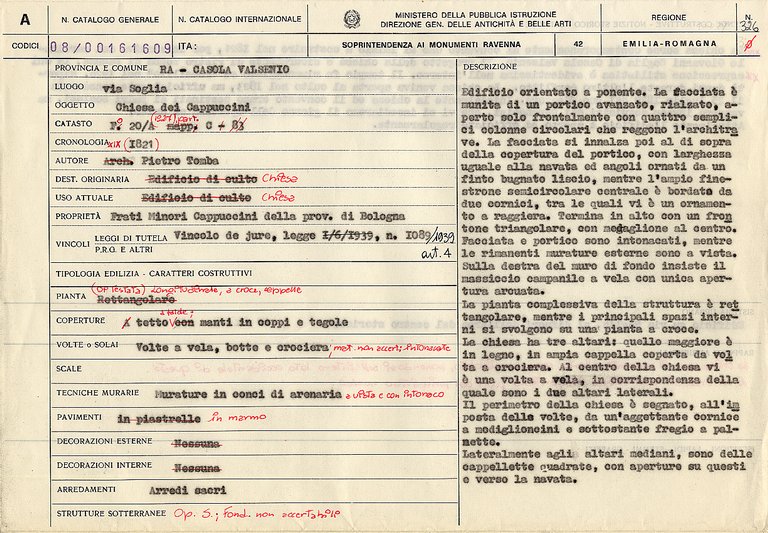 A
N. CATALOGO GENERALE
N. CATALOGO INTERNAZIONALE
MINISTERO DELLA PUBBLICA ISTRUZIONE
DIREZIONE GEN. DELLE ANTICHITÀ E BELLE ARTI
REGIONE
N.
326
CODICI
08/00161609
ITA:
SOPRINTENDENZA AI MONUMENTI RAVENNA
42
EMILIA-ROMAGNA
PROVINCIA E COMUNE RA - CASOLA VALSENIO
LUOGO via Soglia
OGGETTO Chiesa dei Cappuccini
(1827) part.
CATASTO F° 20/A mapp. C - 83
CRONOLOGIA XIX (I821)
AUTORE Arch. Pietro Tomba
DEST. ORIGINARIA Edificio di culto Chiesa
USO ATTUALE Edificio di culto Chiesa
PROPRIETÀ Frati Minori Cappuccini della prov. di Bologna
VINCOLI LEGGI DI TUTELA Vincolo de jure, legge I/6/I939, n. I089/1939
P.R.G. E ALTRI art. 4
TIPOLOGIA EDILIZIA - CARATTERI COSTRUTTIVI
longitudinale, a croce, cappelle
PIANTA Rettangolare
a falde;
COPERTURE A tetto con manti in coppi e tegole
VOLTE o SOLAI Volte a vela, botte e crociera; mat. non accert; intonacate
SCALE
TECNICHE MURARIE Murature in conci di arenaria a vista e con intonaco
PAVIMENTI in piastrelle in marmo
DECORAZIONI ESTERNE Nessuna
DECORAZIONI INTERNE Nessuna
ARREDAMENTI Arredi sacri
STRUTTURE SOTTERRANEE Op. S.; Fond. non accertabile
DESCRIZIONE
Edificio orientato a ponente. La facciata è
munita di un portico avanzato, rialzato, a-
perto solo frontalmente con quattro sempli-
ci colonne circolari che reggono l'architra
ve. La facciata si innalza poi al di sopra
della copertura del portico, con larghezza
uguale alla navata ed angoli ornati da un
finto bugnato liscio, mentre l'ampio fine-
strone semicircolare centrale è bordato da
due cornici, tra le quali vi è un ornamen-
to a raggiera. Termina in alto con un fron
tone triangolare, con medaglione al centro.
Facciata e portico sono intonacati, mentre
le rimanenti murature esterne sono a vista.
Sulla destra del muro di fondo insiste il
massiccio campanile a vela con unica aper-
tura arcuata.
La pianta complessiva della struttura è ret
tangolare, mentre i principali spazi inter-
ni si svolgono su una pianta a croce.
La chiesa ha tre altari: quello maggiore è
in legno, in ampia cappella coperta da vol
ta a crociera. Al centro della chiesa vi
è una volta a vela, in corrispondenza della
quale sono i due altari laterali.
Il perimetro della chiesa è segnato, all'im
posta delle volte, da un'aggettante cornice
a modiglioncini e sottostante fregio a pal-
mette.
Lateralmente agli altari mediani, sono delle
cappellette quadrate, con aperture su questi
e verso la navata.